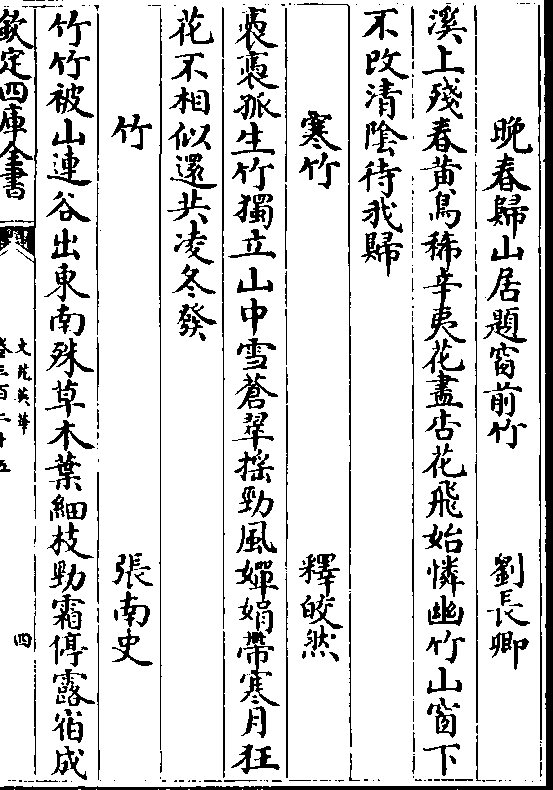 晚春歸山居題窗前竹　劉長卿
溪上殘春黄鳥稀辛夷花盡杏花飛始憐幽竹山窗下
不改清陰待我歸
寒竹　釋皎然
裊裊孤生竹獨立山中雪蒼翠搖勁風嬋娟帶寒月狂
花不相似還共凌冬發
竹　張南史
竹竹被山連谷出東南殊草木葉細枝勁霜停露宿成
欽定四庫全書
文苑英華
卷三百二十五
四